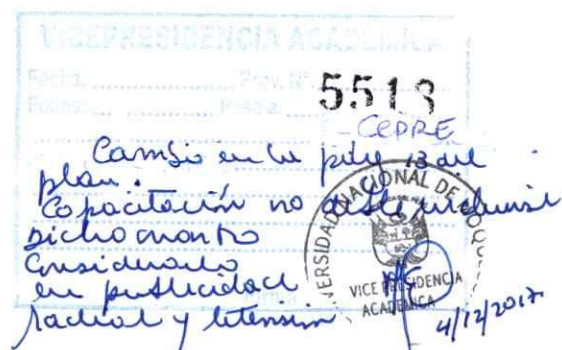 VICEPRESIDENCIA ACADEMICA
Fecha: Prov. Nº
5513
Folios: Pasa a:
CEPRE
Cambio en la pág 13 del
plan.
Capacitación no
dicho monto
Considerarlo
en publicidad
radial y
UNIVERSIDAD NACIONAL DE
VICEPRESIDENCIA
ACADÉMICA
4/12/2017